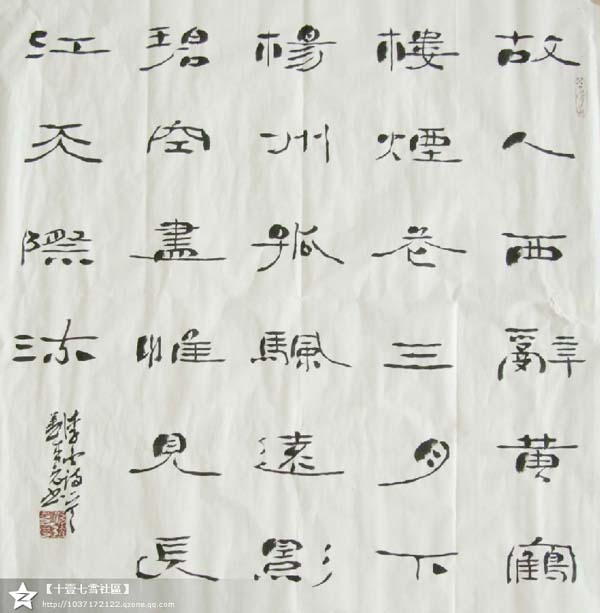 故人西辭黄鶴
樓煙花三月下
楊州孤颿遠影
碧空盡惟見長
江天際流
李白詩
【十壹七雪社區】
http://1037172122.qzone.qq.com